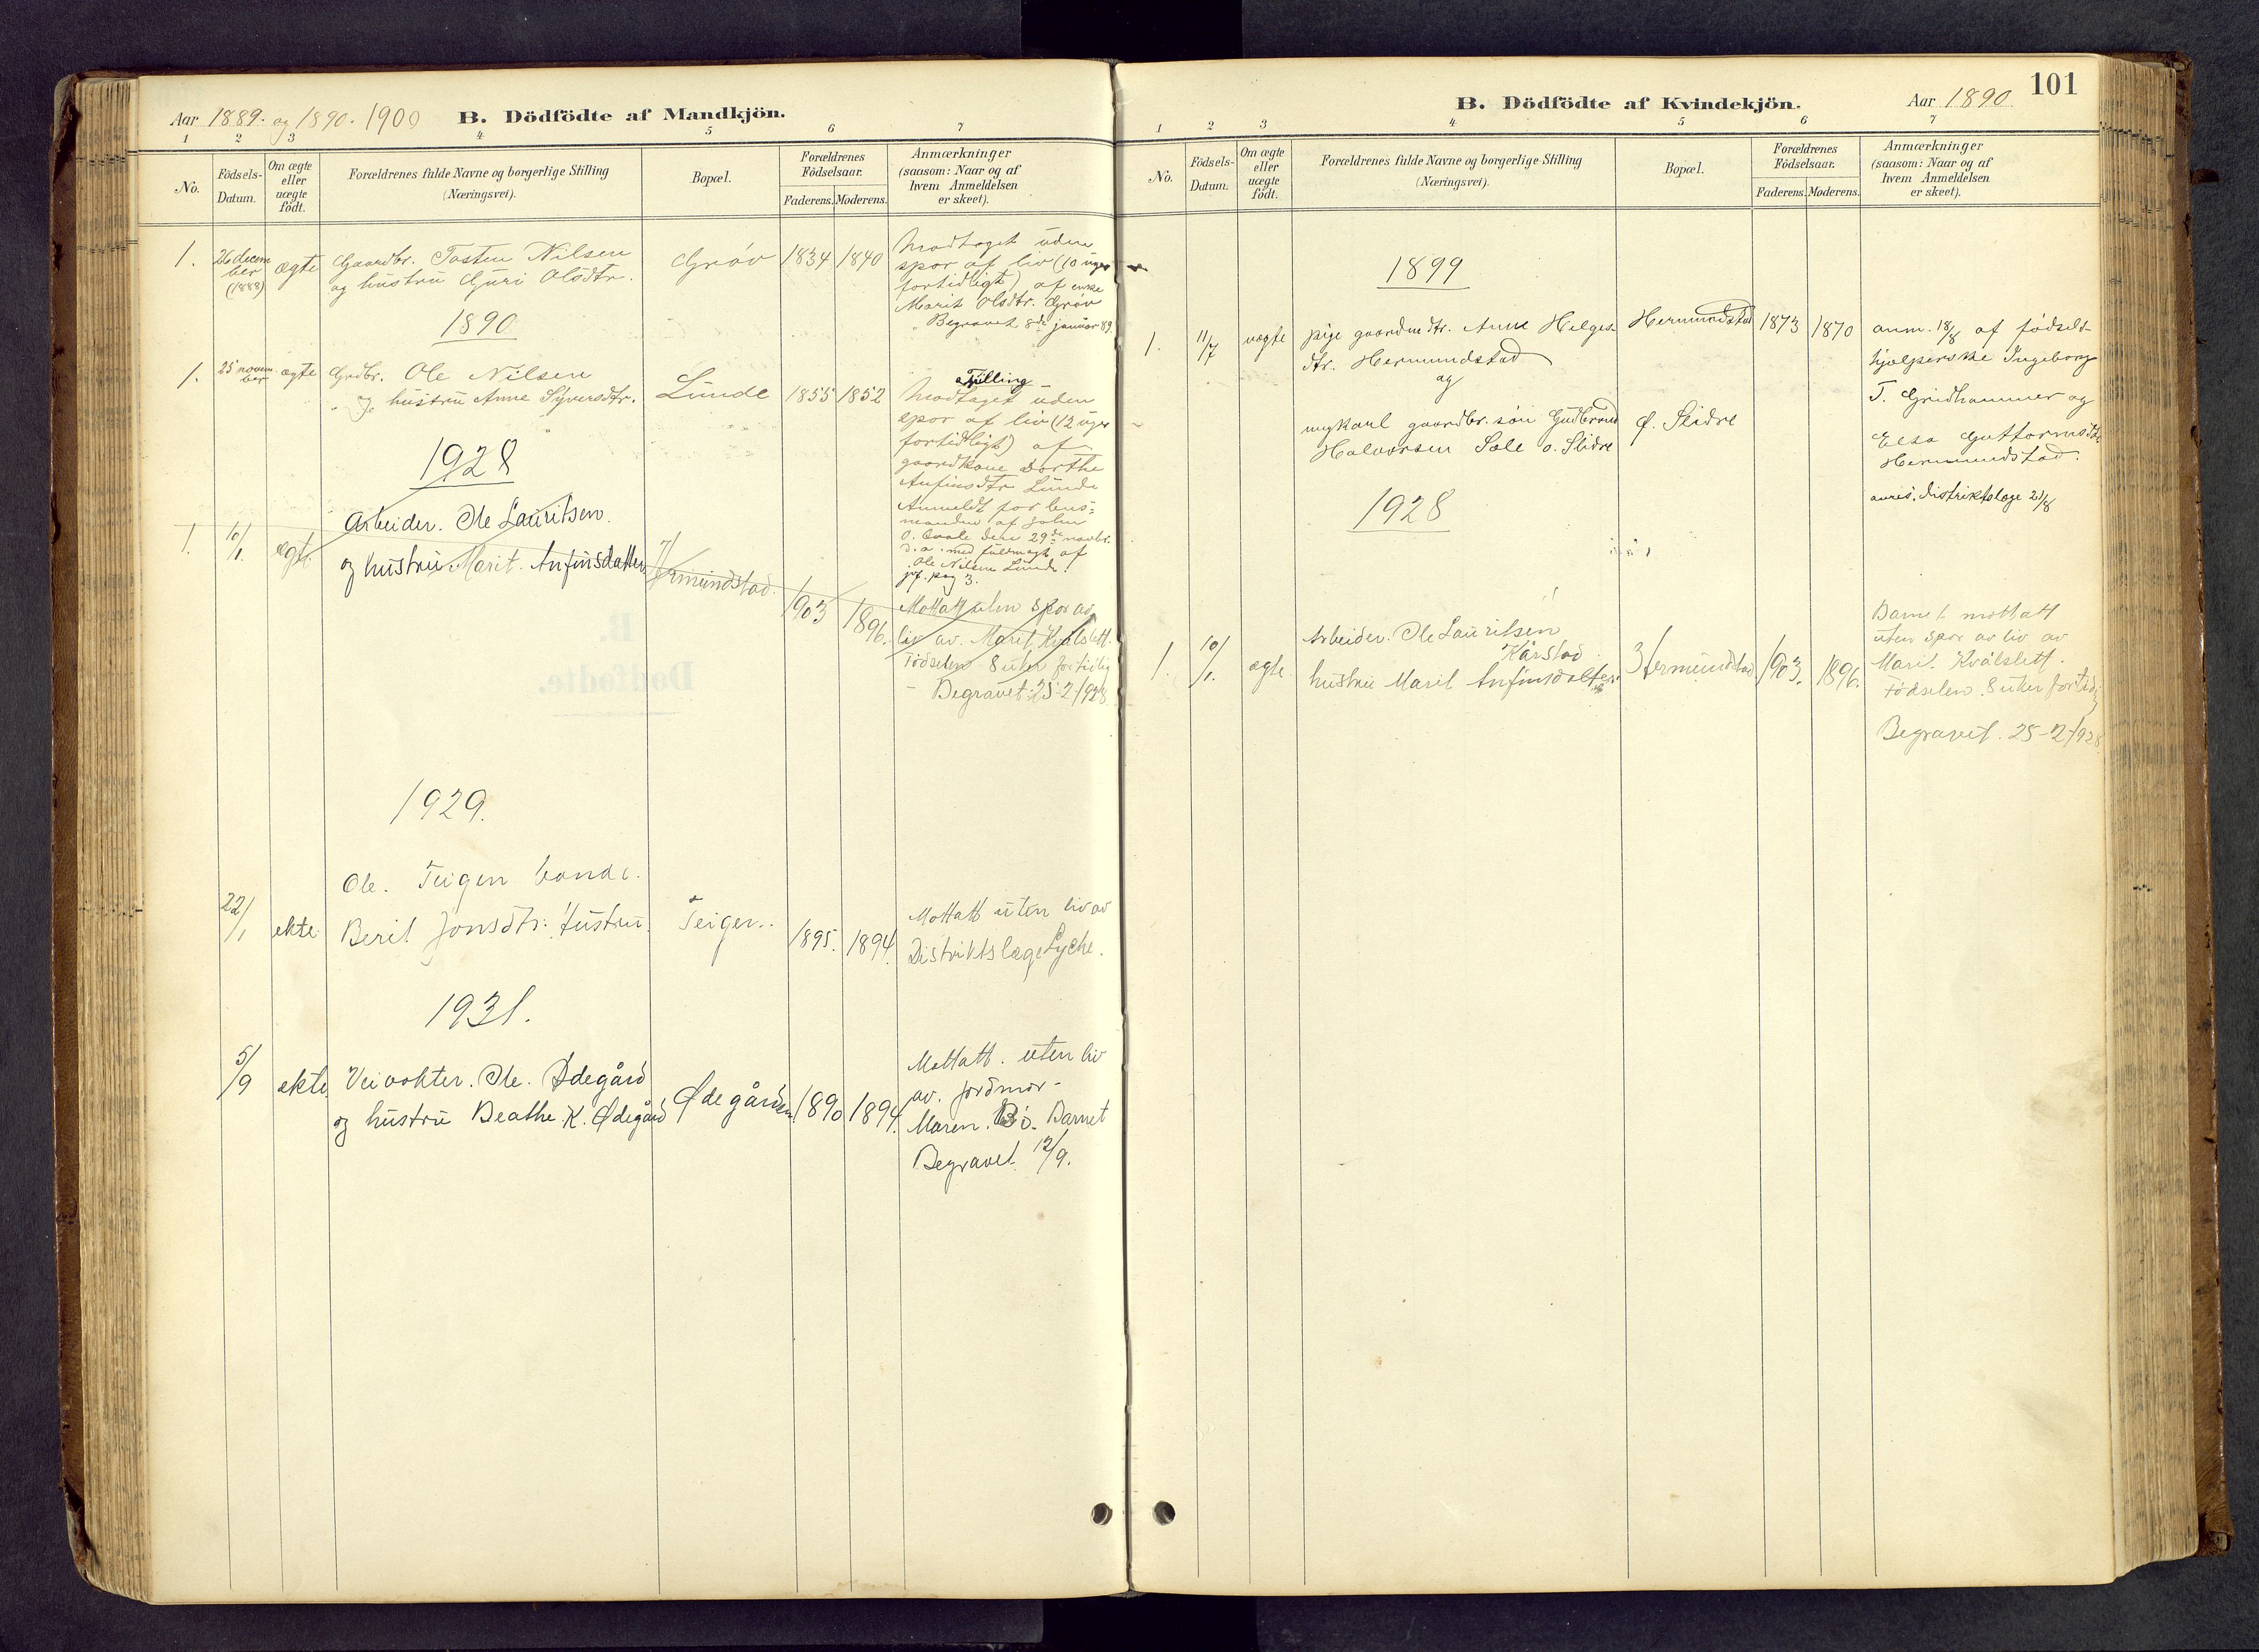 Aar 1889. og 1890. 1900 B. Dödfödte af Mandkjön.
1 2 3 4 5 6 7
No.
Födsels-
Datum.
Om ægte
eller
uægte
födt.
Forældrenes fulde Navne og borgerlige Stilling
(Næringsvei).
Bopæl.
Forældrenes
Födselsaar.
Faderens. Moderens.
Anmærkninger
(saasom: Naar og af
hvem Anmeldelsen
er skeet).
1.
26 decem
ber
(1888)
ægte
Gaardbr. Tosten Nilsen
og hustru Guri Olsdtr.
Grøv
1834
1840
Modtaget uden
spor af liv (10 uger
fortidligt) af enke
Marit Olsdtr. Grøv
Begravet 8de januar 89.
1890
1.
25 novem
ber
ægte
Grdbr. Ole Nilsen
og hustru Anne Syversdtr.
Lunde
1855
1852
Tvilling
Modtaget uden
spor af liv (12 uger
fortidligt) af
gaardkone Dorthe
Anfinsdtr Lunde
Anmeldt for lens-
manden af John
O. Qvale den 29de novbr.
d. a. med fuldmagt af
Ole Nilsen Lunde.
jvf. pag 3.
1928
1.
10/1
ægte
Arbeider. Ole Lauritsen.
og hustru Marit. Anfinsdatter
Hermundstad.
1903
1896.
Mottatt uten spor av
liv av. Marit Kvålslett.
Födselen 8 uker fortidlig
– Begravet. 25-2-1928
1929.
22/1
ekte
Ole. Teigen bonde.
Berit Jonsdtr. Hustru.
Teigen..
1895.
1894.
Mottatt uten liv av
Distriktslæge Lyche.
1931.
5/9
ekte
Veivokter. Ole. Ødegård
og hustru Beathe. K. Ødegård
Ødegården.
1890
1894.
Mottatt. uten liv
av. jordmor –
Maren. Bö. Barnet
Begravet. 12/9.
B. Dödfödte af Kvindekjön. Aar 1890. 101
1 2 3 4 5 6 7
No.
Födsels-
Datum.
Om ægte
eller
uægte
födt.
Forældrenes fulde Navne og borgerlige Stilling
(Næringsvei).
Bopæl.
Forældrenes
Födselsaar.
Faderens. Moderens.
Anmærkninger
(saasom: Naar og af
hvem Anmeldelsen
er skeet).
1899
1.
11/7
uægte
pige gaardmdtr. Anne Helges-
dtr. Hermundstad
og
ungkarl gaardbr. søn Gudbrand
Halvorsen Sole ø. Slidre
Hermundstad
Ø. Slidre
1873
1870
anm. 18/8 af fødsels-
hjælperske Ingeborg
T. Gridhammer og
Elsa Guttormsdtr.
Hermundstad.
distriktslæge 21/8
1928
1.
10/1.
ægte
Arbeider. Ole Lauritsen
Kårstad.
hustru Marit Anfinsdatter.
Hermundstad
1903.
1896.
Barnet mottatt
uten spor av liv av
Marit. Kvålslett.
Födselen. 8 uker fortidlig
Begravet. 25-2-1928